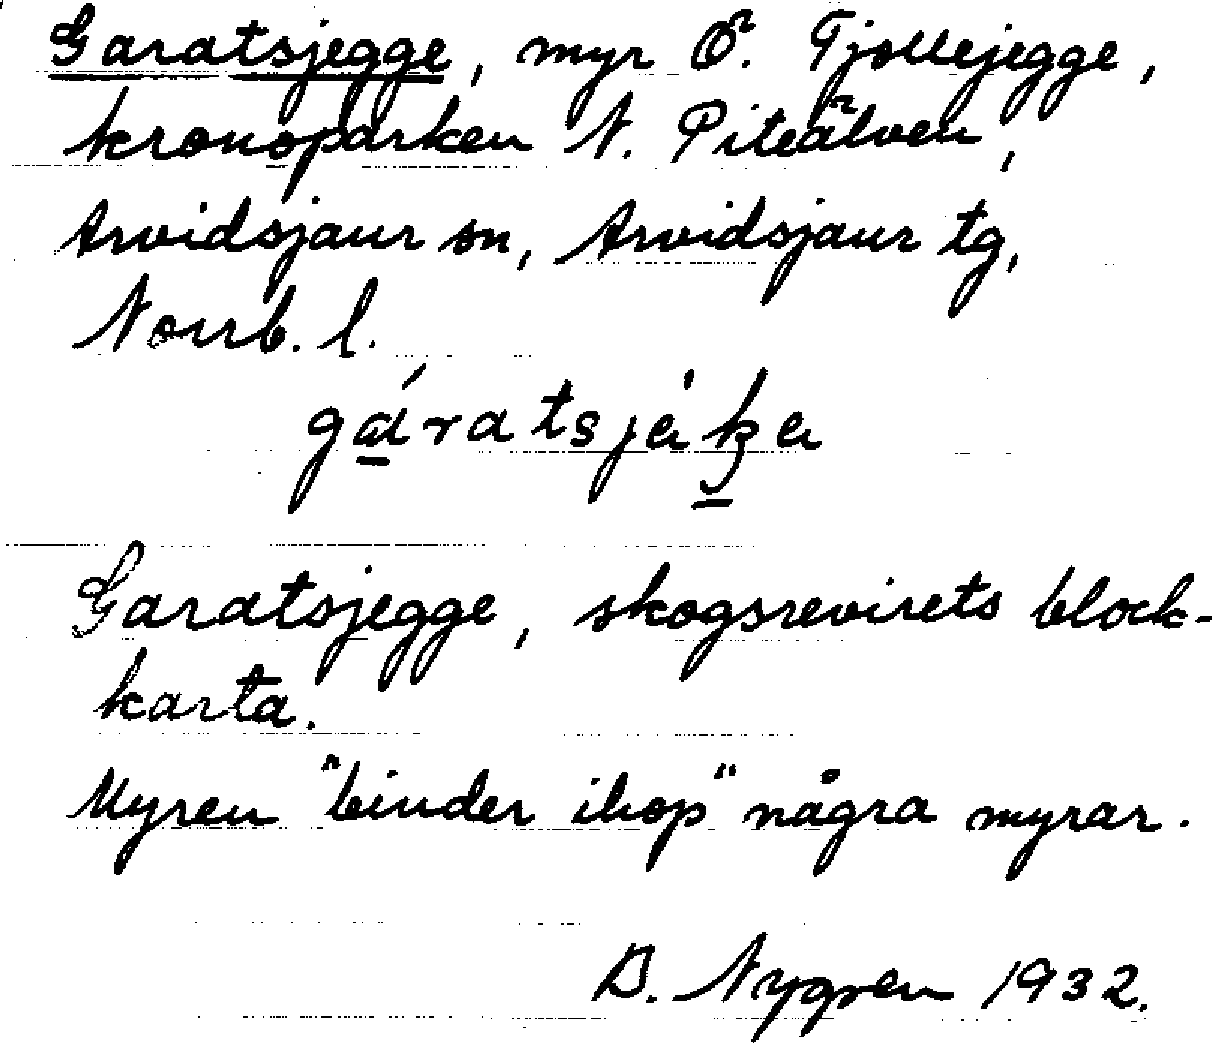 Garatsjegge, myr Ö. Tjollejegge,
kronoparken N. Piteälven,
Arvidsjaur sn, Arvidsjaur tg,
Norrb. l.
Garatsjegge, skogsrevirets block-
karta.
Myren "binder ihop" några myrar.
B. Nygren 1932.